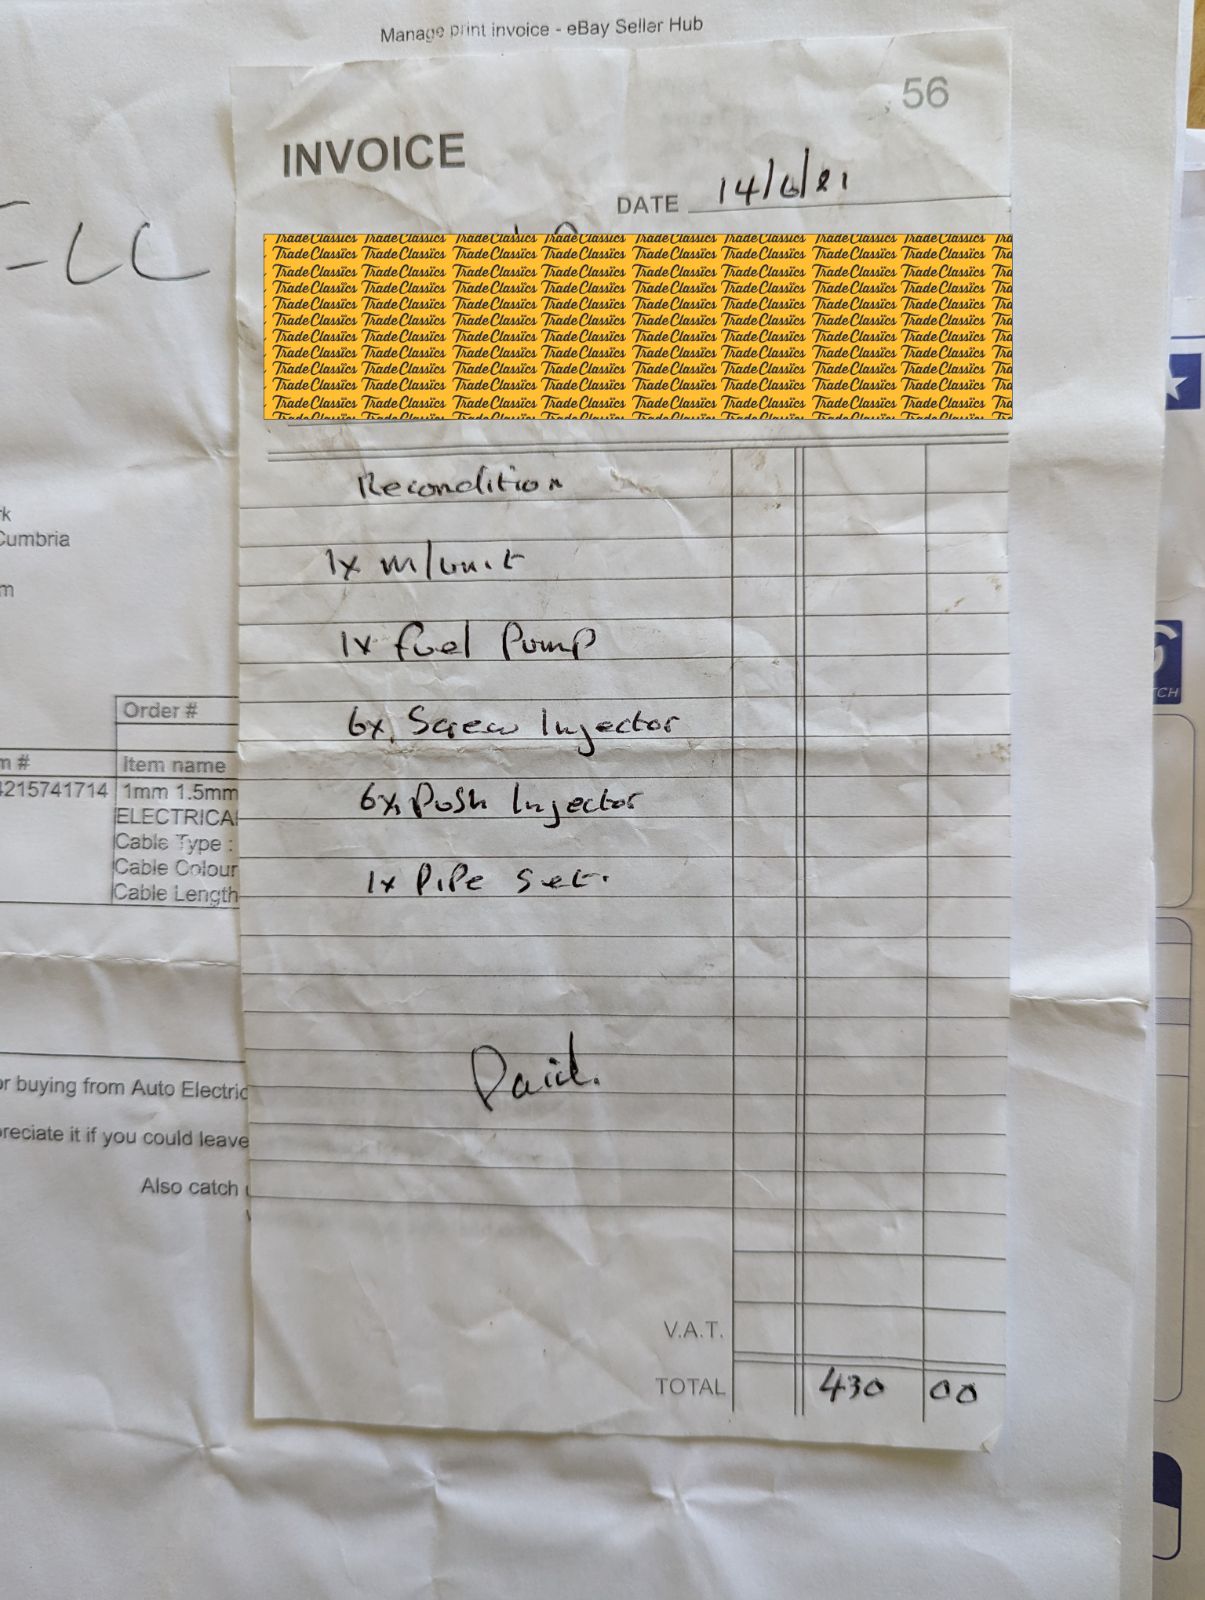 Manage print invoice - eBay Seller Hub
56
INVOICE
DATE 14/6/21
LC
Trade Classics
Recondition
1x m/unit
1x Fuel Pump
6x Screw Injector
6x Push Injector
1x Pipe Set.
Paid.
V.A.T.
TOTAL 430 00
Cumbria
Order #
Item name
4215741714 1mm 1.5mm
ELECTRICA
Cable Type :
Cable Colour
Cable Length
or buying from Auto Electric
preciate it if you could leave
Also catch
TCH